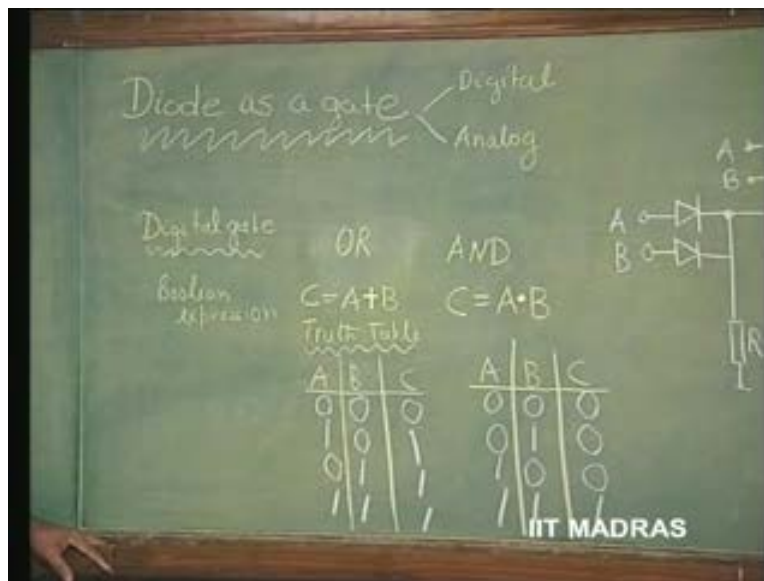 Diode as a gate
Digital
Analog
Digital gate OR AND
Boolean expression C=A+B C=A•B
Truth Table
A B C
0 0 0
1 0 1
0 1 1
1 1 1
A B C
0 0 0
0 1 0
1 0 0
1 1 1
A
B
A
B
R
IIT MADRAS